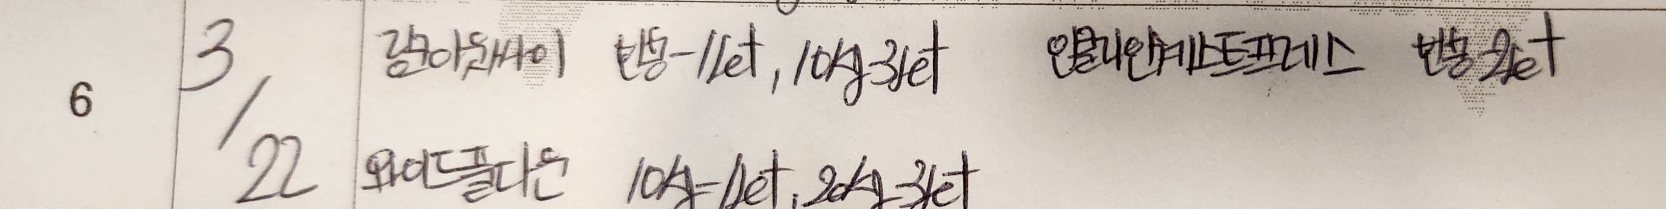 6
3/22
힙아웃싸이 빈봉-1set, 10kg-3set 인클라인체스트프레스 빈봉-2set
와이드풀다운 10kg-1set, 20kg-3set